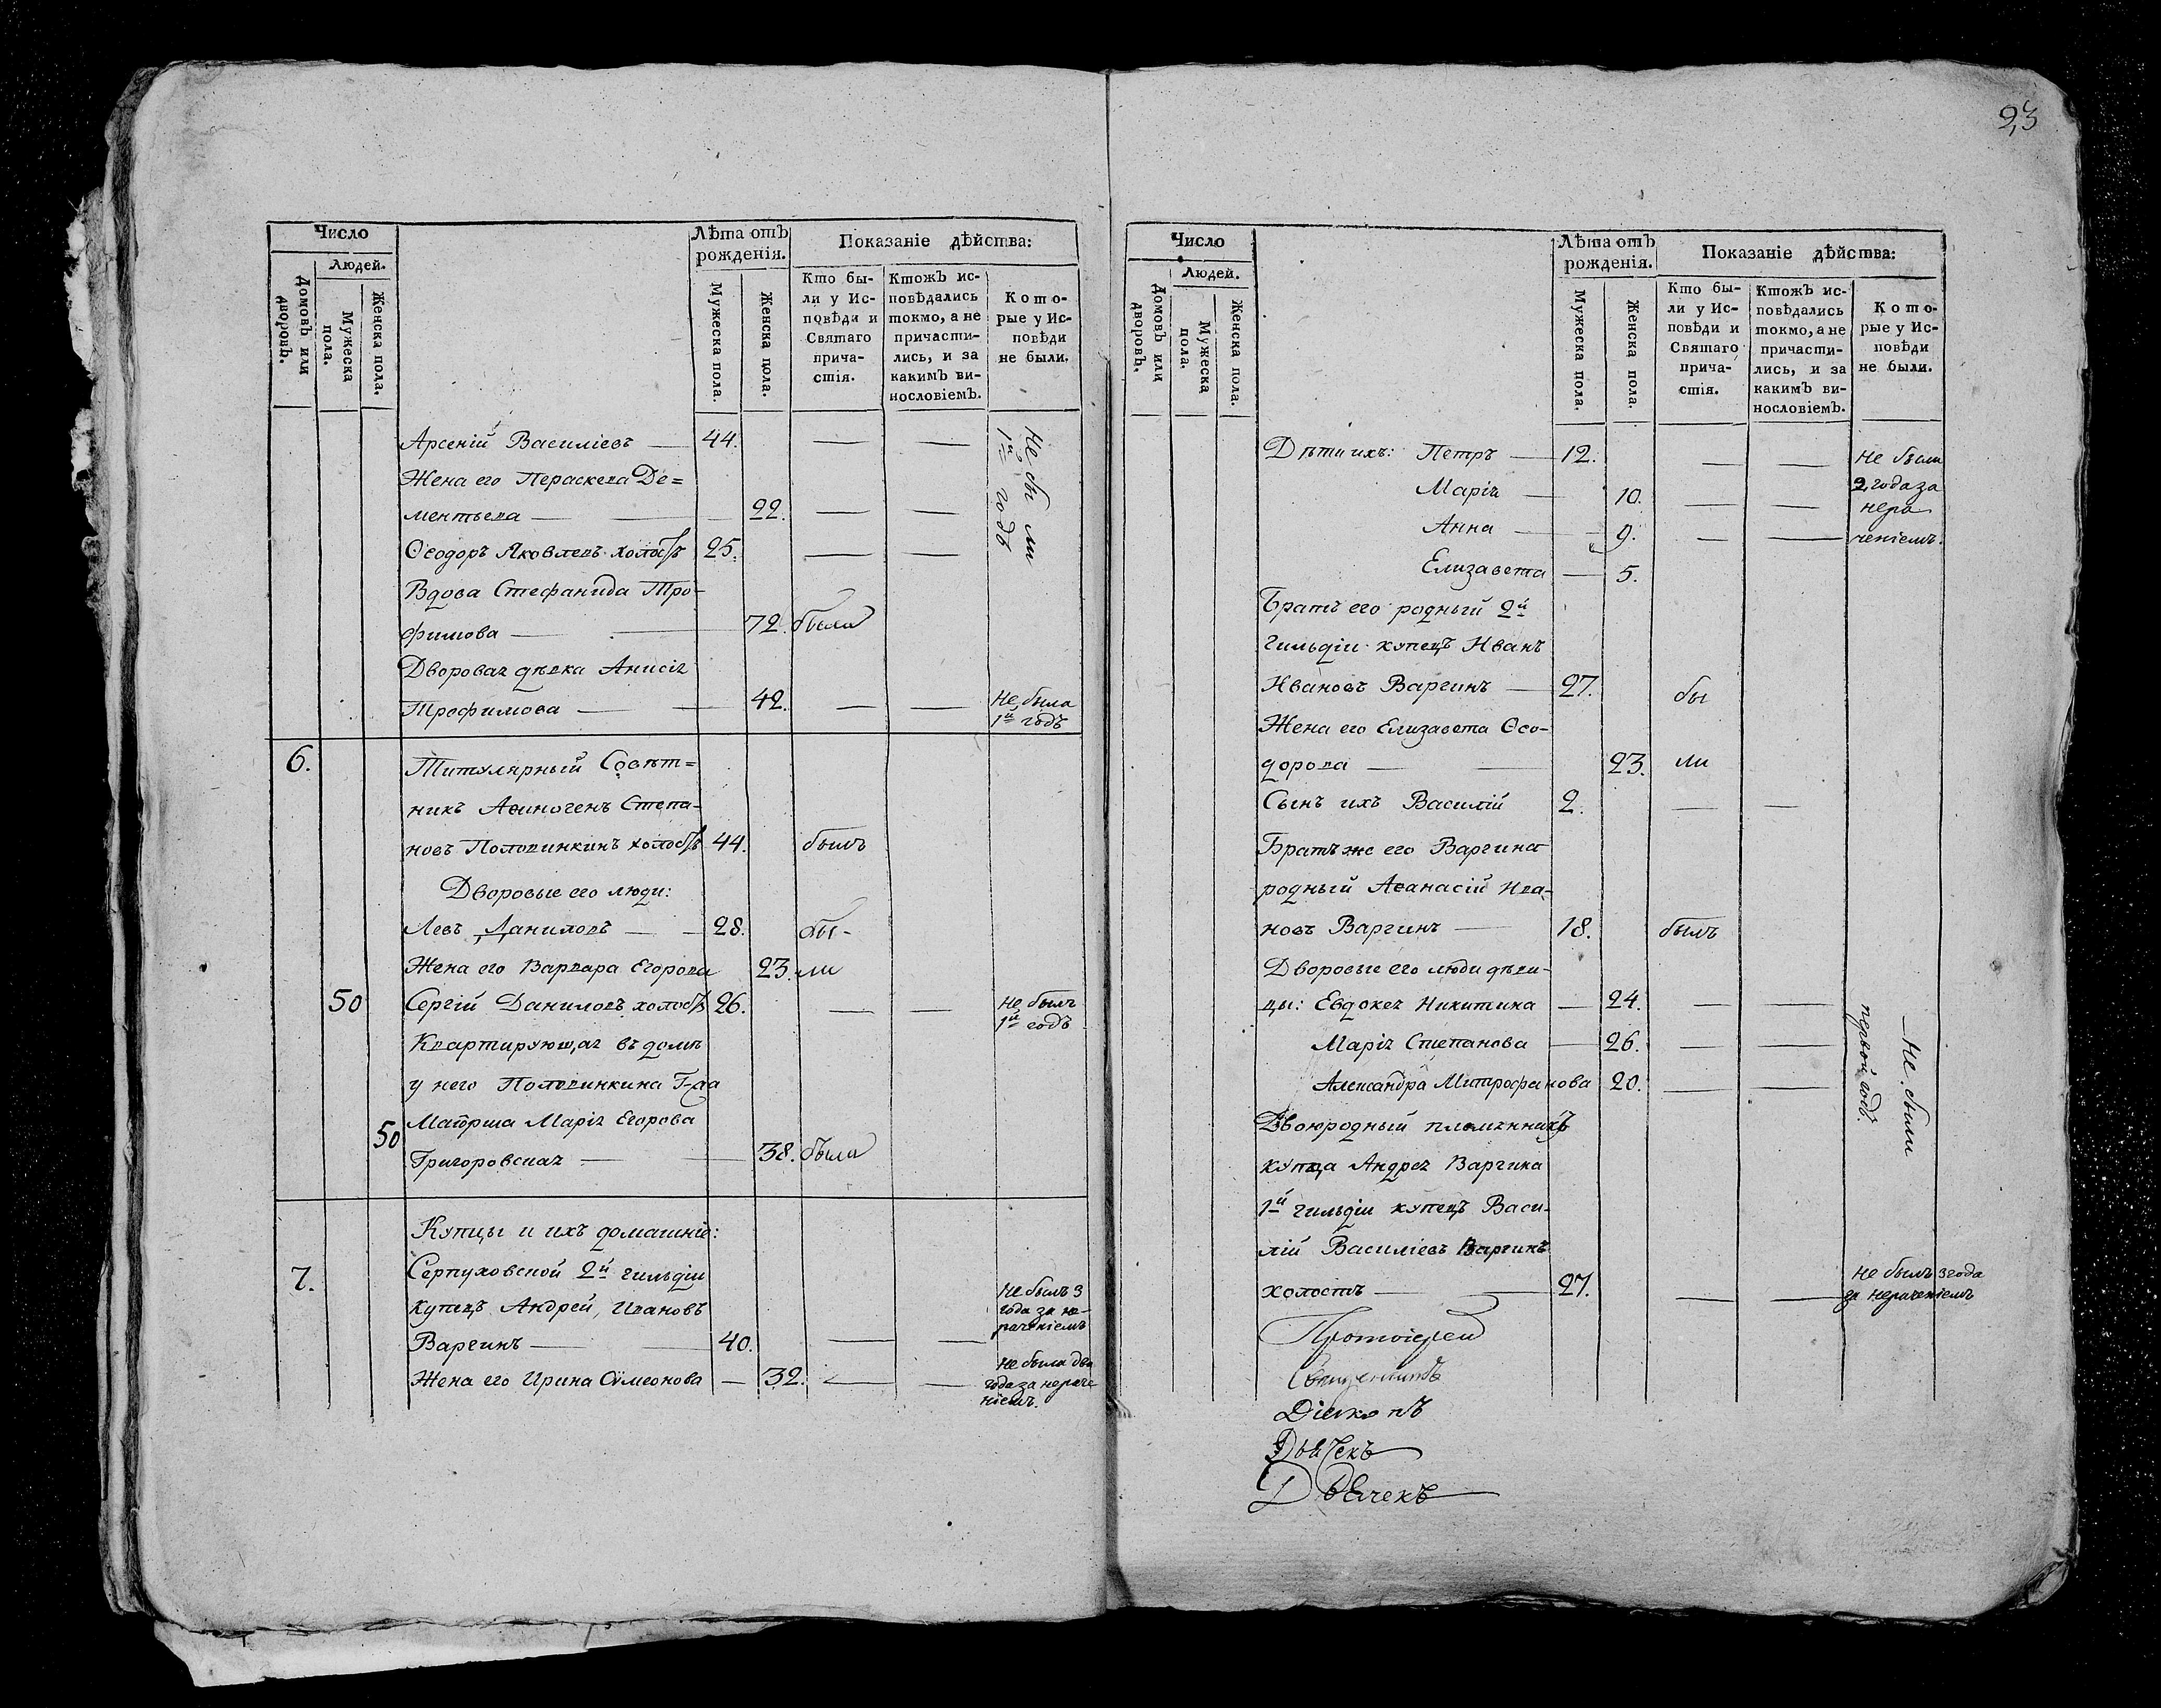 23
Число
Людей.
Домовъ или дворовъ.
Мужеска пола.
Женска пола.
Лѣта отъ рожденія.
Мужеска пола.
Женска пола.
Показаніе дѣйства:
Кто бы-
ли у Ис-
повѣди и
Святаго
прича-
стія.
Ктожъ ис-
повѣдались
токмо, а не
причасти-
лись, и за
какимъ ви-
нословіемъ.
Кото-
рые у Ис-
повѣди
не были.
Арсеній Василіевъ — 44. — —
Не бы ли
1й годъ
Жена его Параскева Де=
ментьева — 22. — —
Ѳеодоръ Яковлевъ холостъ 25. — —
Вдова Стефанида Тро-
фимова — 72. была
Дворовая дѣвка Анисія
Трофимова — 42. — — Не была
1й годъ
6. Титулярный Совѣт=
никъ Аѳиногенъ Степа-
новъ Половинкинъ холостъ 44. былъ
Дворовые его люди:
Левъ Даниловъ — 28. бы-
Жена его Варвара Егорова 23. ли
50 Сергій Даниловъ холостъ 26. — — Не былъ
1й годъ
Квартирующая въ домѣ
у него Половинкина Г-жа
50 Маіорша Марія Егорова
Григоровская — 38. была
Купцы и ихъ домашніе:
7. Серпуховской 2й гильдіи
купецъ Андрей Ивановъ
Варгинъ — 40. — —
Не былъ 3
года за не-
раченіемъ
Жена его Ирина Сѵмеонова — 32. — —
Не была два
года за нераче-
ніемъ.
Число
Людей.
Домовъ или дворовъ.
Мужеска пола.
Женска пола.
Лѣта отъ рожденія.
Мужеска пола.
Женска пола.
Показаніе дѣйства:
Кто бы-
ли у Ис-
повѣди и
Святаго
прича-
стія.
Ктожъ ис-
повѣдались
токмо, а не
причасти-
лись, и за
какимъ ви-
нословіемъ.
Кото-
рые у Ис-
повѣди
не были.
Дѣти ихъ: Петръ — 12. — — Не были
Марія — 10. — — 2 года за
нера
Анна — 9. — — ченіемъ.
Елизавета — 5.
Братъ его родный 2й
гильдіи купецъ Иванъ
Ивановъ Варгинъ — 27. бы
Жена его Елизавета Ѳео-
дорова — 23. ли
Сынъ ихъ Василій 2. — —
Братъ же его Варгина
родный Аѳанасій Ива-
новъ Варгинъ — 18. былъ
Дворовые его люди дѣви-
цы: Евдокея Никитина — 24. — —
Марія Степанова — 26. — —
Александра Митрофанова 20. — —
— Не были
первой годъ.
Двоюродный племянникъ
купца Андрея Варгина
1й гильдіи купецъ Васи-
лій Василіевъ Варгинъ
холостъ — 27. — — Не былъ 3 года
за нераченіемъ
Протоіерей
Священникъ
Діяконъ
Дьячекъ
Дьячекъ